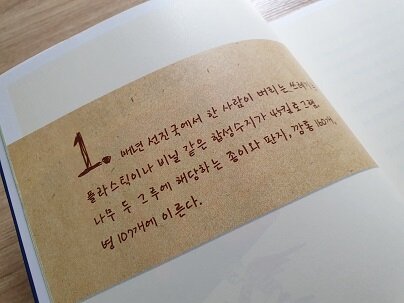 1. 매년 선진국에서 한 사람이 버리는 쓰레기는
플라스틱이나 비닐 같은 합성수지가 45킬로그램,
나무 두 그루에 해당하는 종이와 판지, 깡통 160개,
병 107개에 이른다.